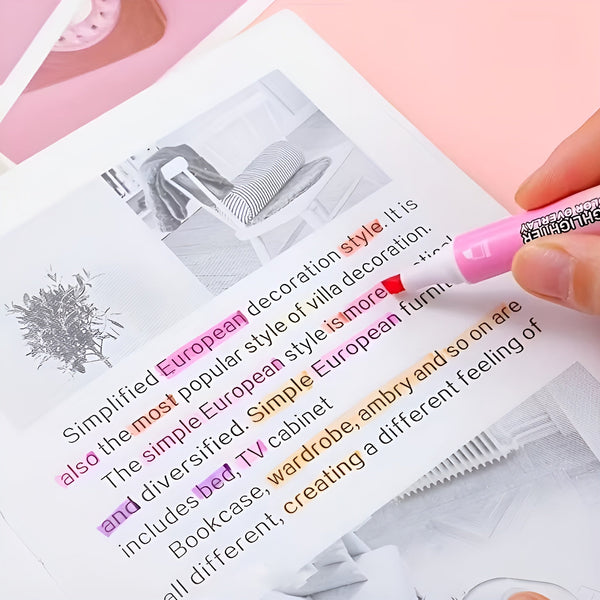 Simplified European decoration style. It is
also the most popular style of villa decoration.
The simple European style is more
and diversified. Simple European
includes bed, TV cabinet
Bookcase, wardrobe, ambry and so on are
all different, creating a different feeling of
HIGHLIGHTER
COLOR OVERLAY